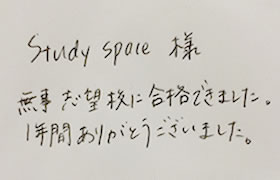 Study space 様
無事 志望校に合格できました。
1年間ありがとうございました。